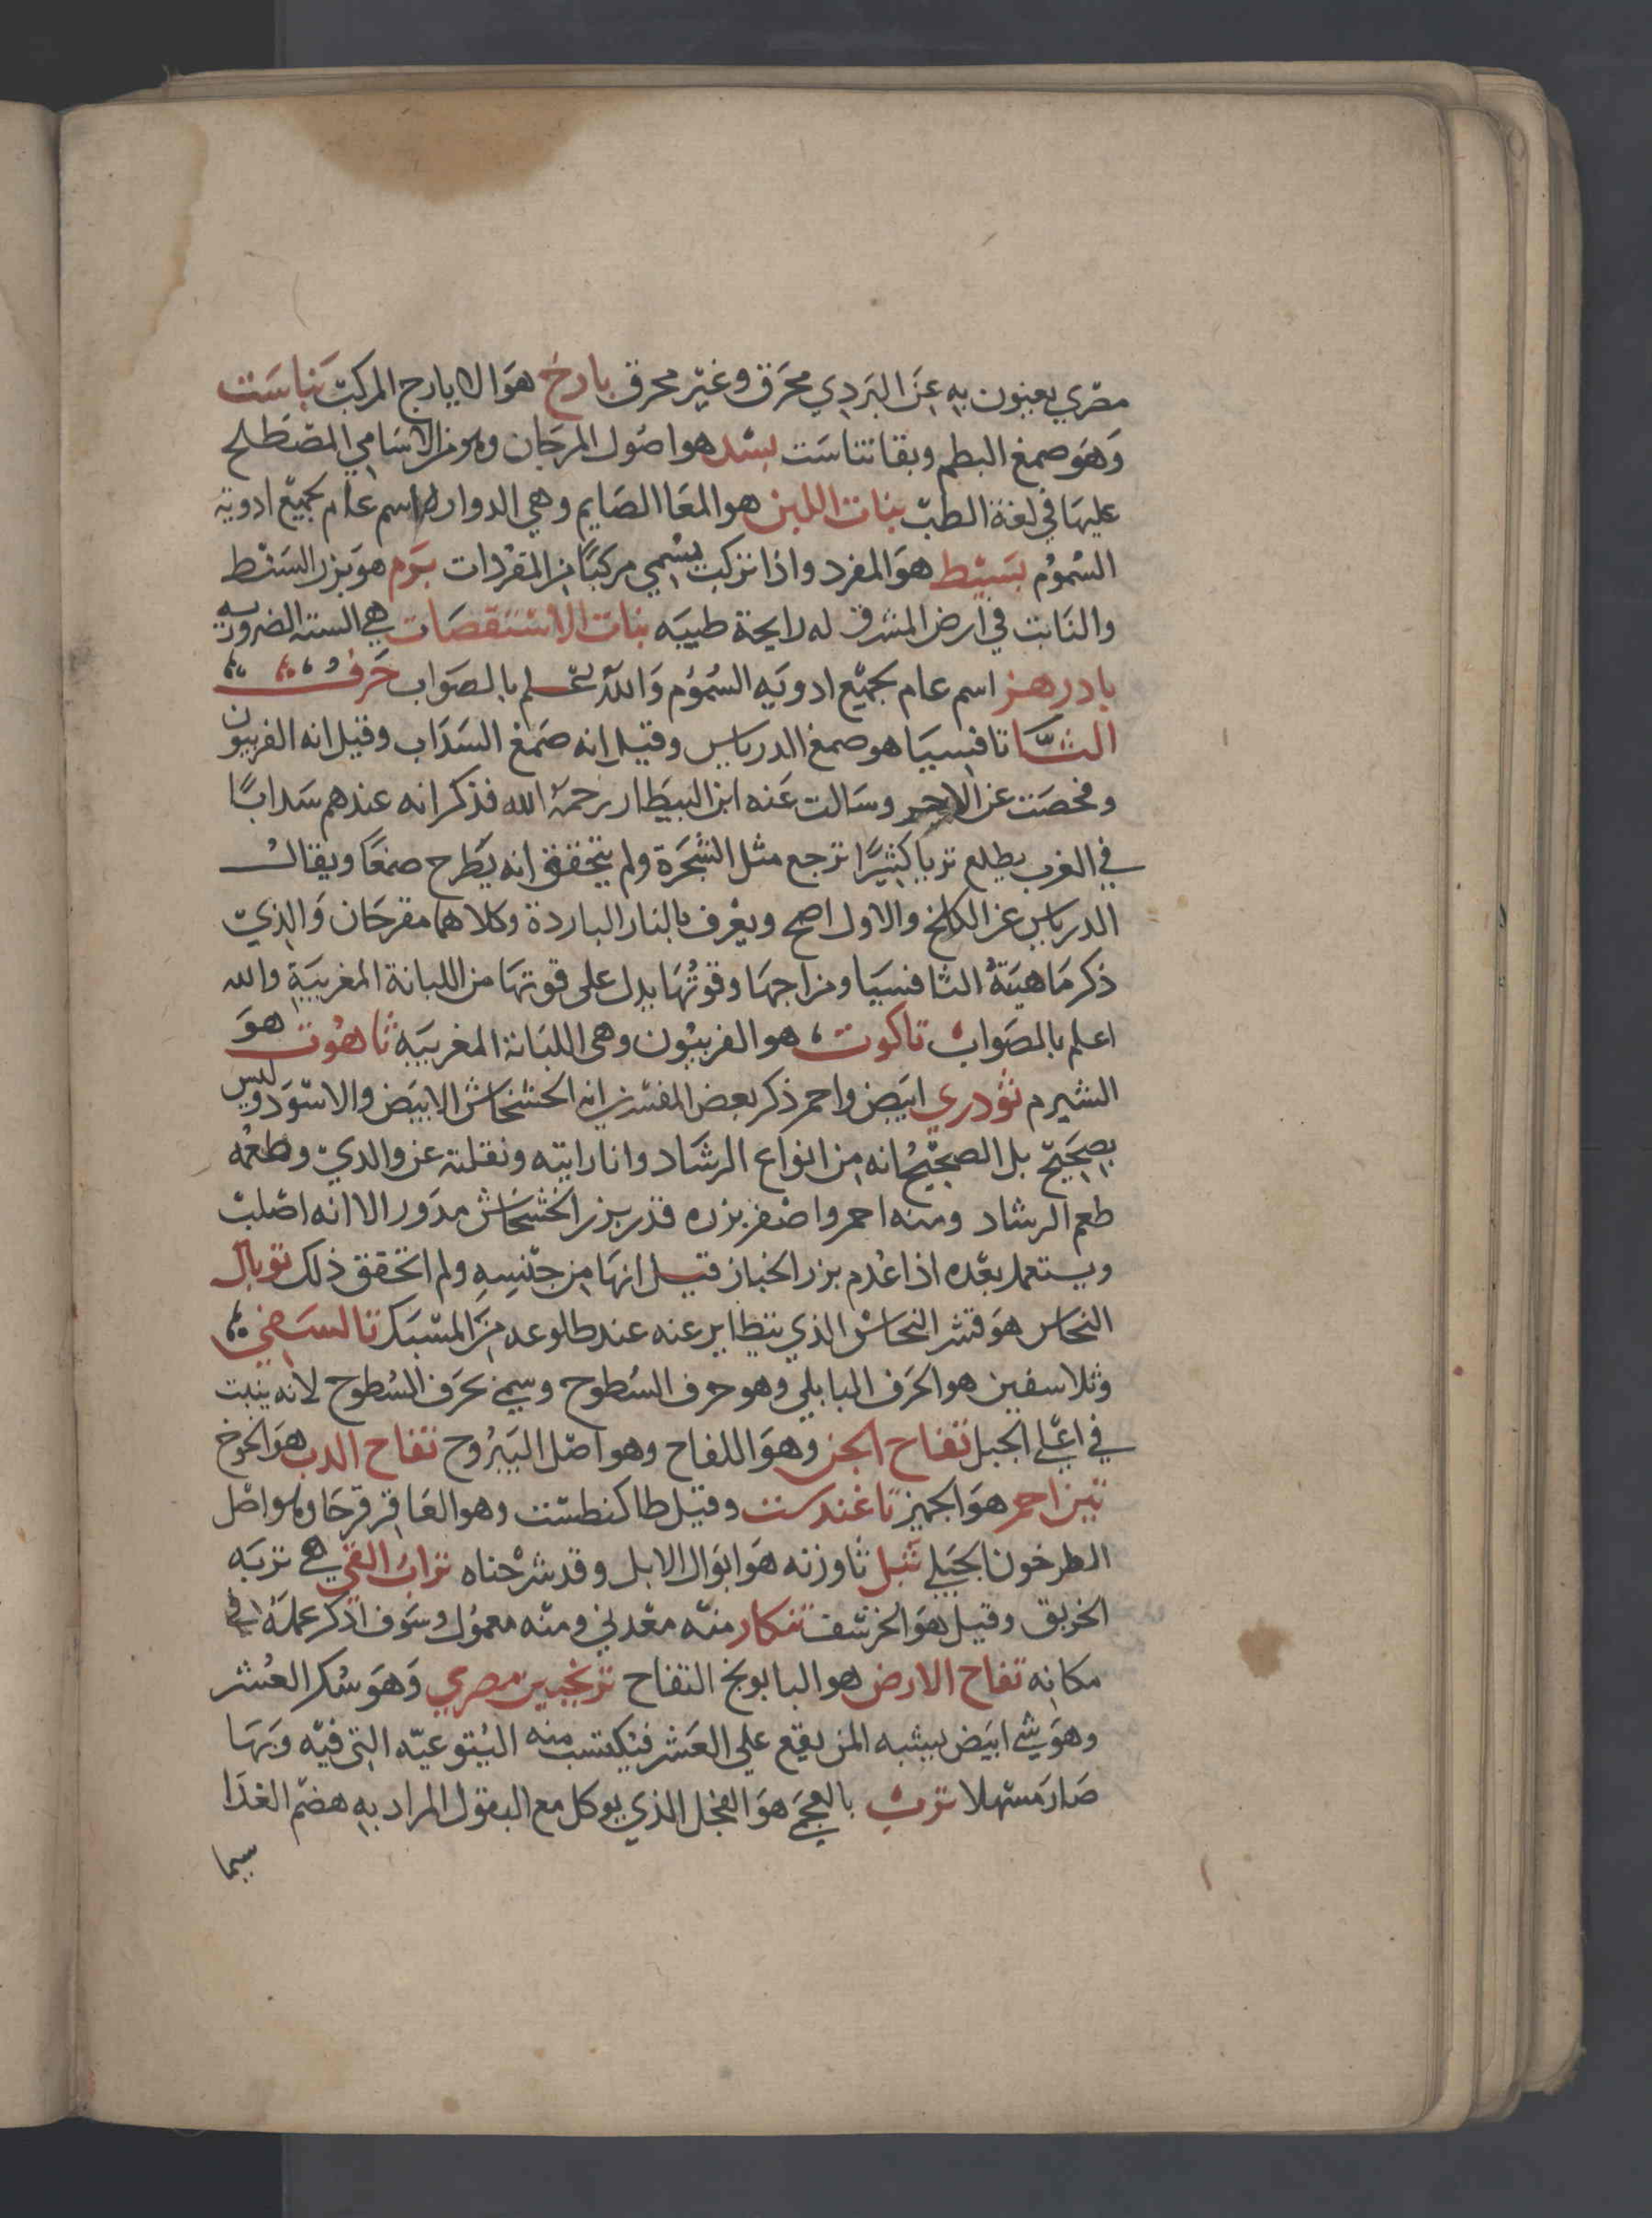 مصري يعنون به عن البردي محرق وغير محرق بارج هو الايارج المركب بناست
وهو صمغ البطم ويقا تناست بسد هو اصول المرجان وهو من الاسامي المصطلح
عليها في لغة الطب بنات اللبن هو المعا الصايم وهي اسم عام بجميع ادوية
السموم بسيط هو المفرد واذا تركب يسمي مركبا من المفردات بوم هو بزر السنط
والنابت في ارض المشرق له رايحة طيبه بنات الاستقصات هي الستة الضرورية
بادرهز اسم عام بجميع ادويه السموم والله اعلم بالصواب حرف
التا تافسيا هو صمغ الدرياس وقيل انه صمغ السداب وقيل انه الفربيون
وفحصت عن وسالت عنه ابن البيطار رحمه الله فذكر انه عندهم سدابا
في الغرب يطلع كثيرا ترجع مثل الشجرة ولم يتحقق انه يطرح صمغا ويقال
الدرياس عن الكلخ والاول اصح ويعرف بالنار الباردة وكلاهما مقرحان والذي
ذكر ماهية الثافسيا ومزاجها وقوتها يدل على قوتها من اللبانة المغربية والله
اعلم بالصواب تاكوت هو الفربيون وهي اللبانة المغربيه تاهوت هو
الشبرم تودري ابيض واحمر ذكر بعض المفسرين انه الخشخاش الابيض والاسود وليس
بصحيح بل الصحيح انه من انواع الرشاد وانا رايته ونقلته عن والدي وطعمه
طعم الرشاد ومنه احمر واصفر بزره قدر بزر الخشخاش مدور الا انه اصلب
ويستعمل بعده اذا عدم بزر الخباز قيل انها من جنسه ولم اتحقق ذلك توبال
النحاس هو قشر النحاس الذي يتطاير عنه عند طلوعه من المسبك تالسفي
وثلاسفين هو الحرف البابلي وهو حرف السطوح وسمي بحرف السطوح لانه ينبت
في اعلي الجبل تفاح الجن وهو اللفاح وهو اصل اليبروح تفاح الدب هو الخوخ
تين احمر هو الجميز تاغندست وقيل طاكنطست وهو العاقر قرحا وهو اصل
الطرخون الجبلي تبل تاوزته هو ابوال الابل وقد شرحناه تراب القي هي تربه
الخربق وقيل هو الخرشف تنكار منه معدني ومنه معمول وسوف اذكر عمله في
مكانه تفاح الارض هو البابونج التفاح ترنجبين مصري وهو سكر العشر
وهو شي ابيض يشبه المن يقع علي العشر فيكتسب منه اليتوعيه التي فيه وبها
صار مسهلا ترب بالعجمي هو الفجل الذي يوكل مع البقول المراد به هضم الغدا
سيما